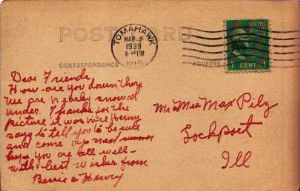 POST CARD
TOMAHAWK
MAR 2
1939
6 PM
WIS.
1 CENT 1
CORRESPONDENCE
ADDRESS
Dear Friends
How are you down there
We are nearly snowed
under. Thanks for the
picture it was nice. Henry
says to tell you to be sure
and come up next summer
hope you are all well-
with best wishes from
Bernice & Henry
Mr Mrs Max Pilz
Lockport
Ill